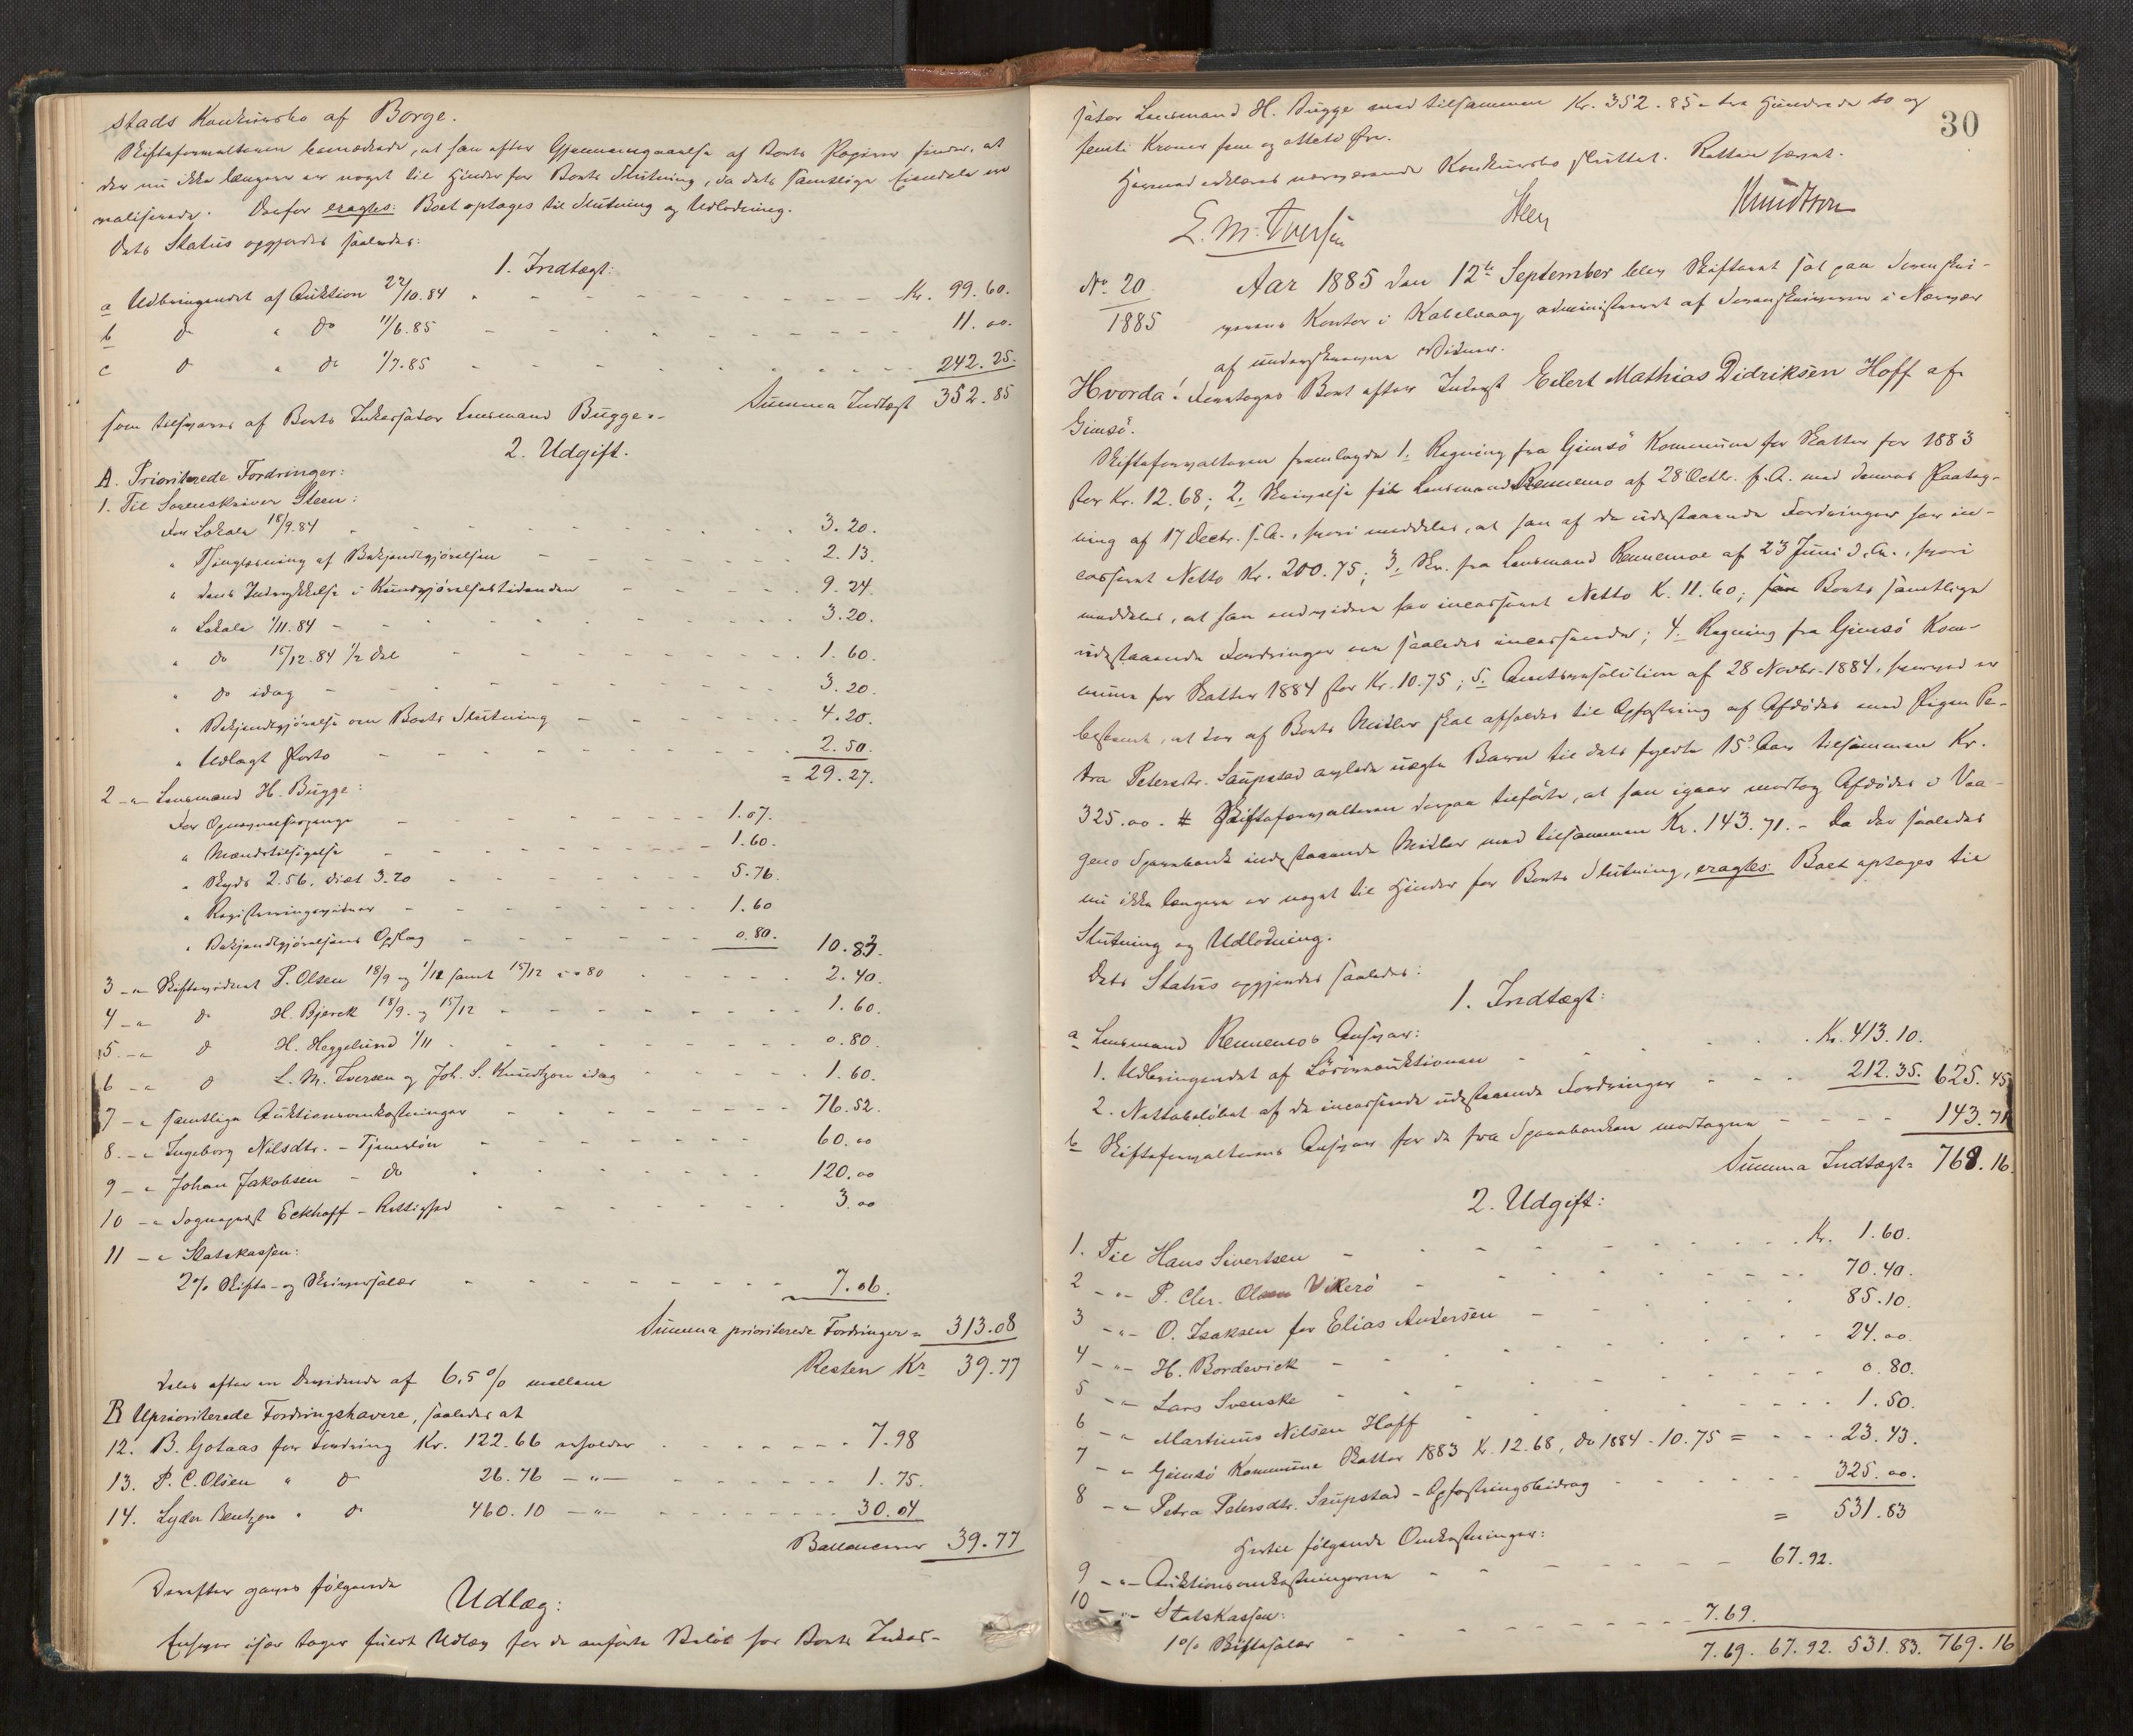 stads Konkursbo af Borge.
Skifteforvalteren bemærkede, at han efter Gjennemgaaelse af Boets Papirer finder, at
der nu ikke længere er noget til Hinder for Boets Slutning, da dets samtlige Eiendele er
realiserede. Derfor eragtes: Boet optages til Slutning og Udlodning.
Dets Status opgjordes saaledes:
1. Indtægt:
a Udbringendet af Auktion 22/10.84 " - - - Kr. 99.60.
b do " do 11/6.85 - - - 11.00.
c do " do 1/7.85 - - - 242.25.
Summa Indtægt 352.85
som tilsvares af Boets Inkassator Lensmand Bugge.-
2. Udgift.
A. Prioriterede Fordringer:
1. Til Sorenskriver Steen:
For Lokale 18/9.84 - - - 3.20.
" Thinglæsning af Bekjendtgjörelsen - - - 2.13.
" dens Indrykkelse i Kundgjörelsestidenden - - - 9.24.
" Lokale 1/11.84 - - - 3.20.
" do 15/12.84 1/2 Del - - - 1.60.
" do idag - - - 3.20.
" Bekjendtgjörelse om Boets Slutning - - - 4.20.
" Udlagt Porto - - - 2.50.
= 29.27.
2 -"- Lensmand H. Bugge:
For - - - 1.07.
" Mændstilsigelse - - - 1.60.
" Skyds 2.56, Diæt 3.20 - - - 5.76.
" Registreringsvidner - - - 1.60
" Bekjendtgjörelsens Opslag - - - 0.80. 10.83.
3 -"- Skiftevidnet P. Olsen 18/9 og 1/11 samt 15/12 a 0.80 - - - 2.40.
4 -"- do H. Bjerck 18/9 og 15/12 - - - 1.60.
5 -"- do H. Heggelund 1/11 - - - 0.80.
6 -"- do L. M. Iversen og Joh. S. Knudtzon idag - - - 1.60.
7 -"- samtlige Auktionsomkostninger - - - 76.52.
8 -"- Ingeborg Nilsdtr. - Tjenestelön - - - 60.00
9 -"- Johan Jakobsen - do - - - 120.00
10 -"- Sogneprest Eckhoff - Rettighed - - - 3.00
11 -"- Statskassen:
2% Skifte- og Skriversalær - - - 7.06.
Summa prioriterede Fordringer = 313.08
Resten Kr. 39.77
deles efter en Dividende af 6.5% mellem
B Uprioriterede Fordringshavere, saaledes at
12. B. Gotaas for Fordring Kr. 122.66 erholder - - - 7.98
13. P. C. Olsen " do 26.76 -"- - - - 1.75.
14. Lyder Bentzen " do 460.10 -"- - - - 30.04
Ballancerer 39.77
Derefter gaves følgende
Udlæg:
Enhver især tager fuldt Udlæg for de anførte Beløb hos Boets Inkas-
30
sator Lensmand H. Bugge med tilsammen Kr. 352.85 - tre Hundrede to og
femti Kroner fem og otteti Øre.
Hermed erklæres nærværende Konkursbo sluttet. Retten hævet.
L. M. Iversen Steen Knudtzon
No 20 / 1885
Aar 1885 den 12te September blev Skifteret sat paa Sorenskri-
verens Kontor i Kabelvaag administreret af Sorenskriveren i Nærvær
af underskrevne Vidner.
Hvorda! Foretoges Boet efter Inderst Eilert Mathias Didriksen Hoff af
Gimsö.
Skifteforvalteren fremlagde 1. Regning fra Gimsö Kommune for Skatter for 1883
stor Kr. 12.68; 2. Skrivelse til Lensmand Rennemo af 28 Octbr. f. A. med dennes Paateg-
ning af 17 Decbr. s. A., hvori meddeles, at han af de udestaaende Fordringer har in-
casseret Netto Kr. 200.75; 3. Skr. fra Lensmand Rennemoe af 23 Juni d. A., hvori
meddeles, at han endvidere har incasseret Netto K. 11.60; Boets samtlige
udestaaende Fordringer ere saaledes incasserede; 4. Regning fra Gimsö Kom-
mune for Skatter 1884 stor Kr. 10.75; 5. Amtsresolution af 28 Novbr. 1884, hvorved er
bestemt, at der af Boets Midler skal afholdes til Opfostring af Afdödes med Pigen Pe-
tra Petersdtr. Saupstad avlede uægte Barn til dets fyldte 15de Aar tilsammen Kr.
325.00. # Skifteforvalteren derpaa tilførte, at han igaar modtog Afdödes i Vaa-
gens Sparebank indestaaende Midler med tilsammen Kr. 143.71. - Da der saaledes
nu ikke længere er noget til Hinder for Boets Slutning, eragtes: Boet optages til
Slutning og Udlodning.
Dets Status opgjordes saaledes:
1. Indtægt:
a Lensmand Rennemos Ansvar:
1. Udbringendet af Lösöreauktionen - - - Kr. 413.10.
2. Nettobelöbet af de incasserede udestaaende Fordringer - - - 212.35. 625.45
b Skifteforvalterens Ansvar for de fra Sparebanken modtagne - - - 143.71
Summa Indtægt = 768.16.
2. Udgift:
1. Til Hans Sivertsen - - - Kr. 1.60.
2 -"- P. Chr. Olsen Vikerö - - - 70.40.
3 -"- O. Isaksen for Elias Andersen - - - 85.10.
4 -"- H. Bordevick - - - 24.00.
5 -"- Lars Svenske - - - 0.80.
6 -"- Martinus Nilsen Hoff - - - 1.50.
7 -"- Gimsö Kommune Skatter 1883 K. 12.68, do 1884 - 10.75 = - - - 23.43.
8 -"- Petra Petersdtr. Saupstad - Opfostringsbidrag - - - 325.00.
= 531.83
Hertil følgende Omkostninger:
9 -"- Auktionsomkostningerne - - - 67.92.
10 -"- Statskassen:
1% Skiftesalær - - - 7.69.
7.69. 67.92. 531.83. 769.16